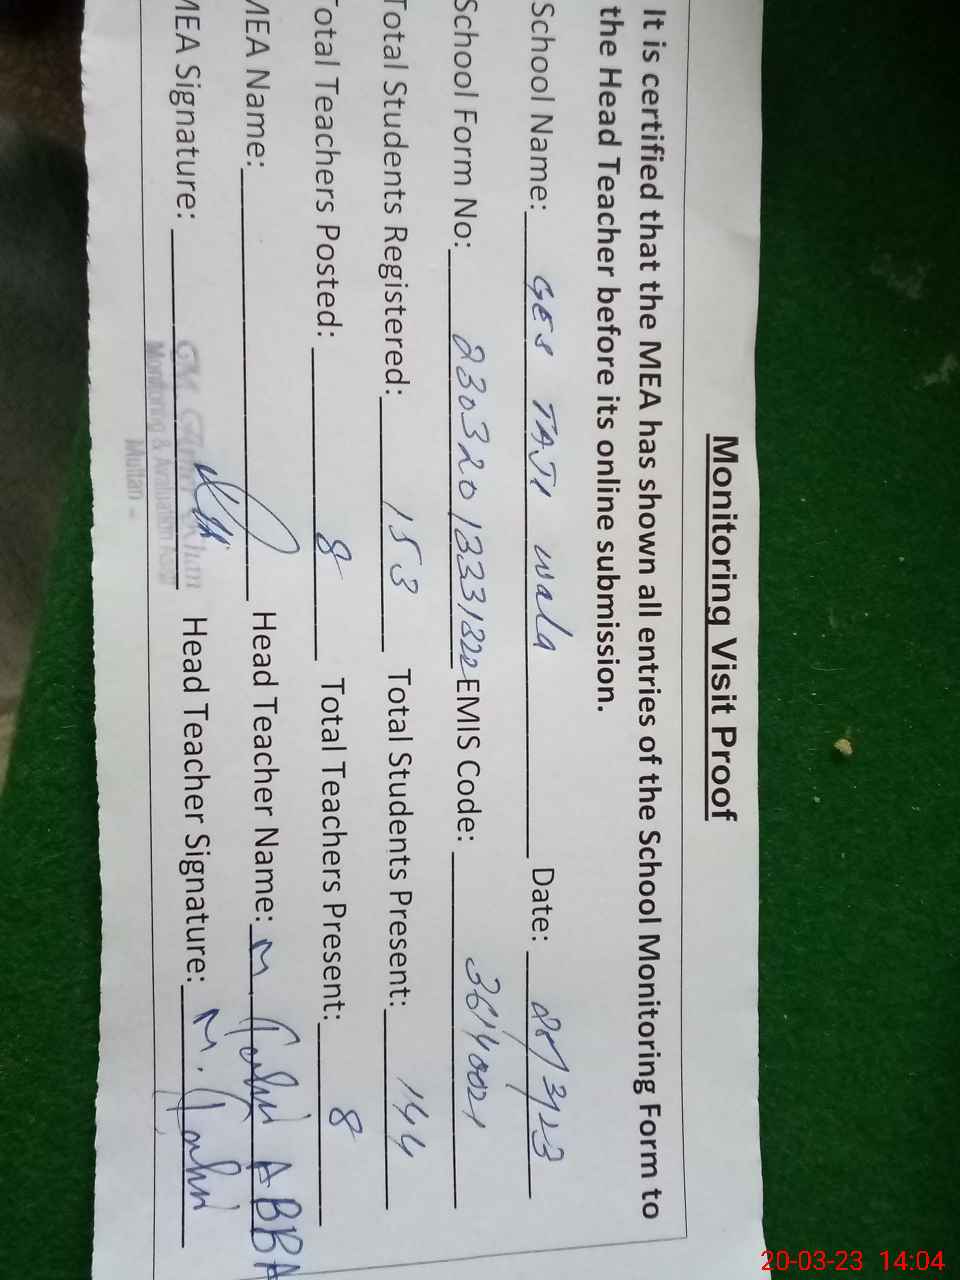 Monitoring Visit Proof
It is certified that the MEA has shown all entries of the School Monitoring Form to
the Head Teacher before its online submission.
School Name: GES TAJI wala Date: 20/3/23
School Form No: 23032013331322 EMIS Code: 36140021
Total Students Registered: 153 Total Students Present: 144
Total Teachers Posted: 8 Total Teachers Present: 8
MEA Name: Head Teacher Name: M ABBA
MEA Signature: Head Teacher Signature: M.
Monitoring &
Multan
20-03-23 14:04